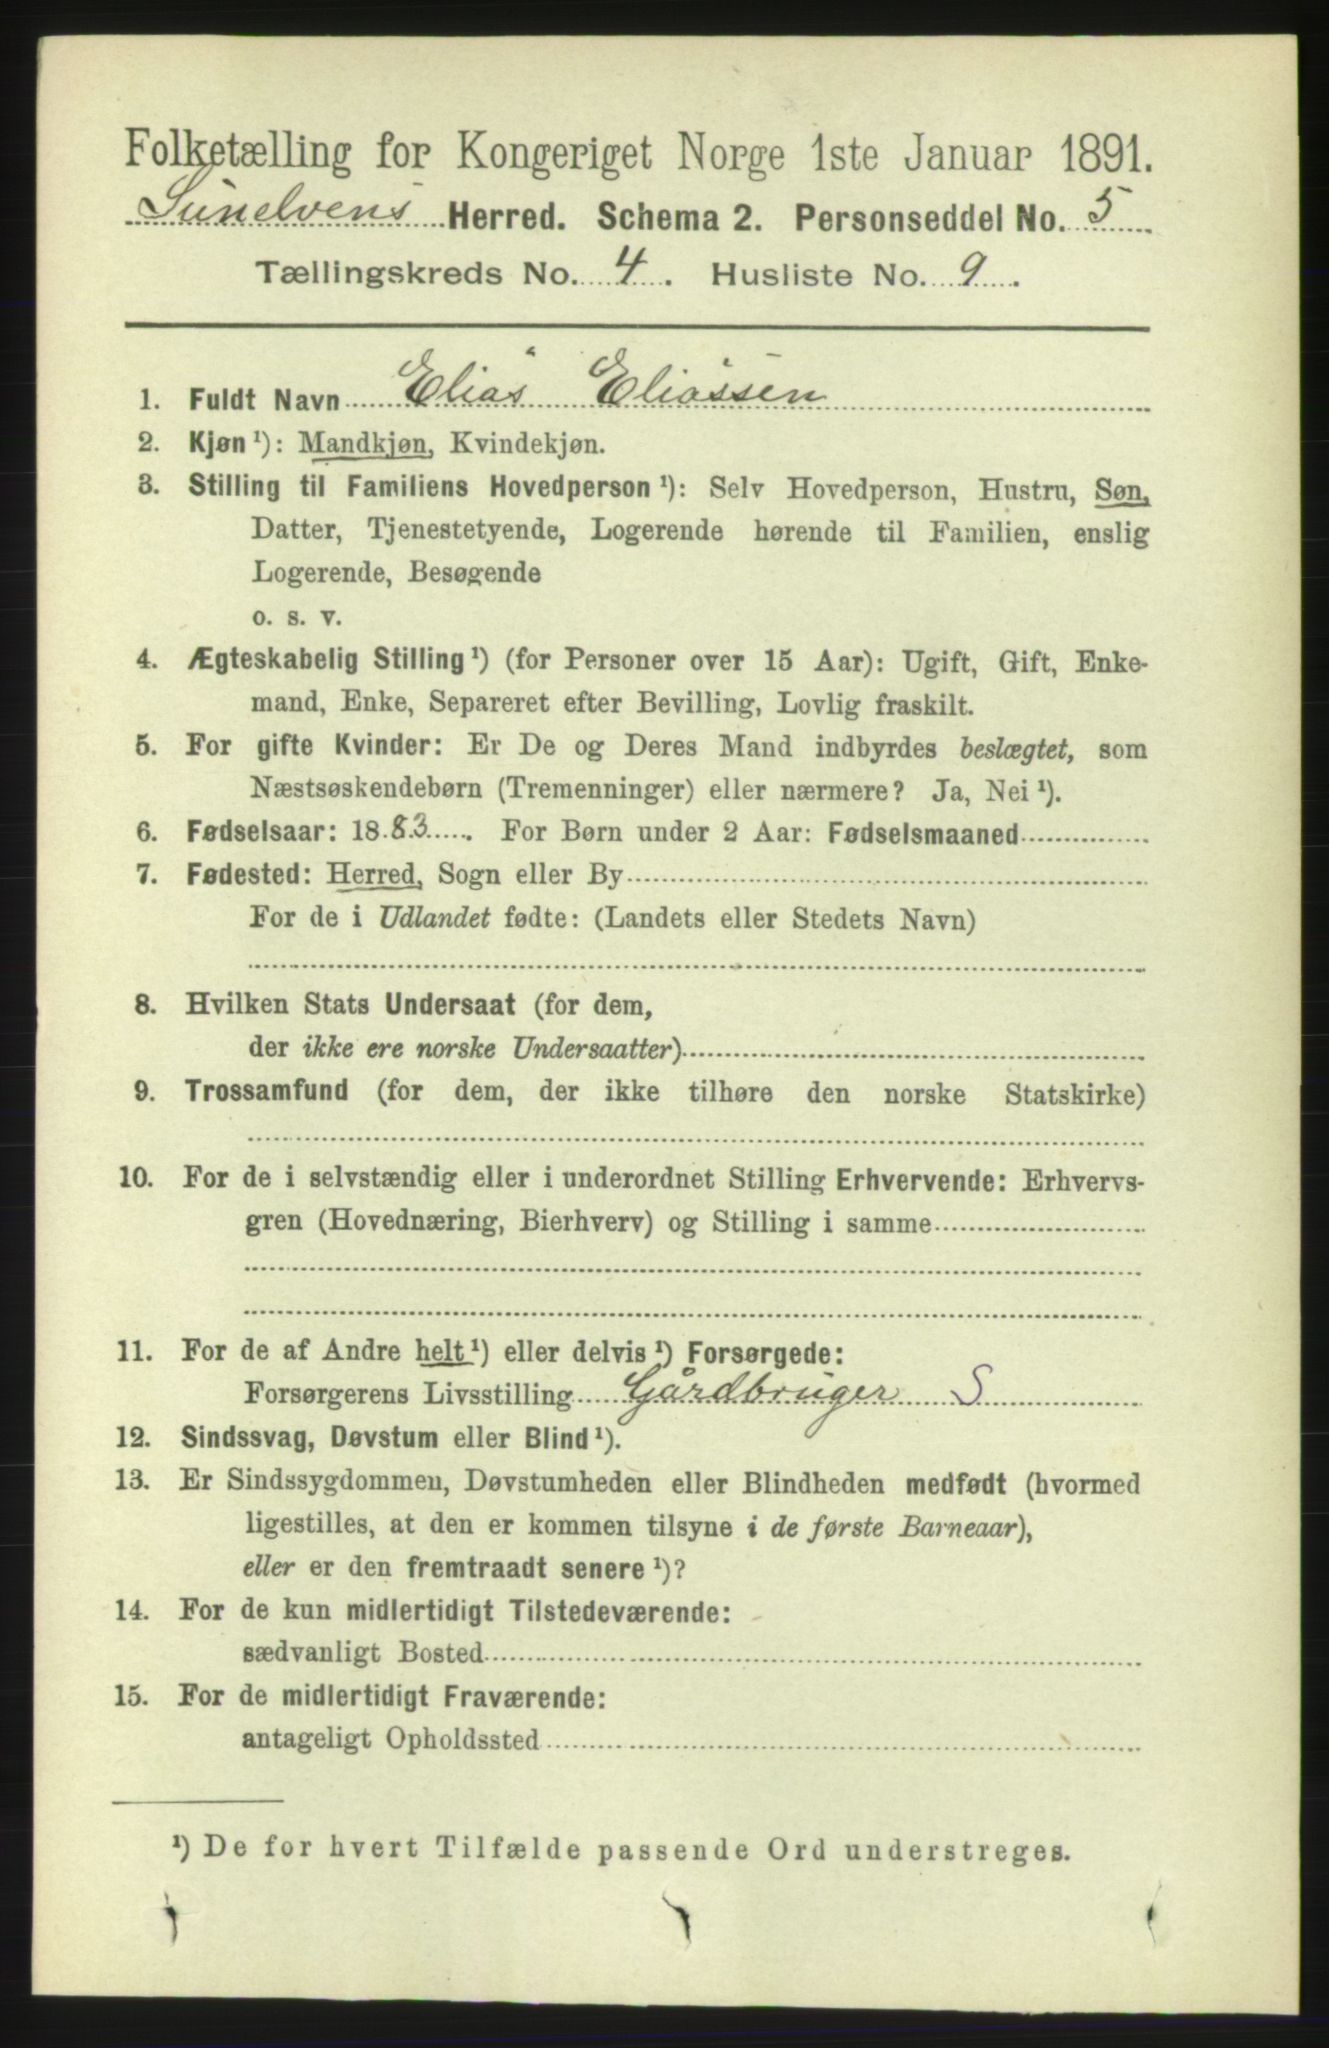 Folketælling for Kongeriget Norge 1ste Januar 1891.
Sunelvens Herred. Schema 2. Personseddel No. 5
Tællingskreds No. 4. Husliste No. 9.
1. Fuldt Navn Elias Eliassen
2. Kjøn¹): Mandkjøn, Kvindekjøn.
3. Stilling til Familiens Hovedperson¹): Selv Hovedperson, Hustru, Søn,
Datter, Tjenestetyende, Logerende hørende til Familien, enslig
Logerende, Besøgende
o. s. v.
4. Ægteskabelig Stilling¹) (for Personer over 15 Aar): Ugift, Gift, Enke-
mand, Enke, Separeret efter Bevilling, Lovlig fraskilt.
5. For gifte Kvinder: Er De og Deres Mand indbyrdes beslægtet, som
Næstsøskendebørn (Tremenninger) eller nærmere? Ja, Nei¹).
6. Fødselsaar: 1883. For Børn under 2 Aar: Fødselsmaaned
7. Fødested: Herred, Sogn eller By
For de i Udlandet fødte: (Landets eller Stedets Navn)
8. Hvilken Stats Undersaat (for dem,
der ikke ere norske Undersaatter)
9. Trossamfund (for dem, der ikke tilhøre den norske Statskirke)
10. For de i selvstændig eller i underordnet Stilling Erhvervende: Erhvervs-
gren (Hovednæring, Bierhverv) og Stilling i samme
11. For de af Andre helt¹) eller delvis¹) Forsørgede:
Forsørgerens Livsstilling Gårdbruger S
12. Sindssvag, Døvstum eller Blind¹).
13. Er Sindssygdommen, Døvstumheden eller Blindheden medfødt (hvormed
ligestilles, at den er kommen tilsyne i de første Barneaar),
eller er den fremtraadt senere¹)?
14. For de kun midlertidigt Tilstedeværende:
sædvanligt Bosted
15. For de midlertidigt Fraværende:
antageligt Opholdssted
¹) De for hvert Tilfælde passende Ord understreges.